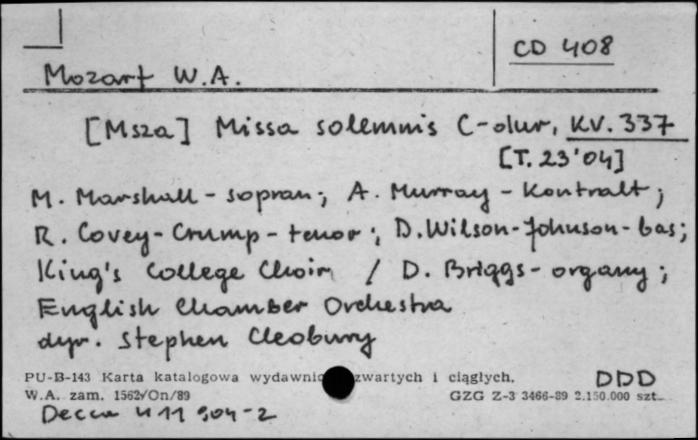 CD 408
Mozart W.A.
[Msza] Missa solemnis C-dur, KV. 337
[T. 23'04]
M. Marshall - sopran; A. Murray - kontralt;
R. Covey-Crump - tenor; D. Wilson-Johnson - bas;
King's College Choir / D. Briggs - organy;
English Chamber Orchestra
dyr. Stephen Cleobury
PU-B-143 Karta katalogowa wydawnic zwartych i ciągłych. DDD
W.A. zam. 1562/On/89 GZG Z-3 3466-89 2.150.000 szt.
Decca 411 904-2